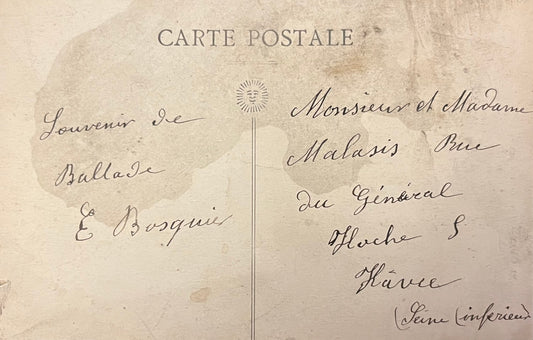 CARTE POSTALE
Souvenir de
Ballade
E Bosquier
Monsieur et Madame
Malasis Rue
du Général
Hoche 5
Hâvre
(Seine (inférieur